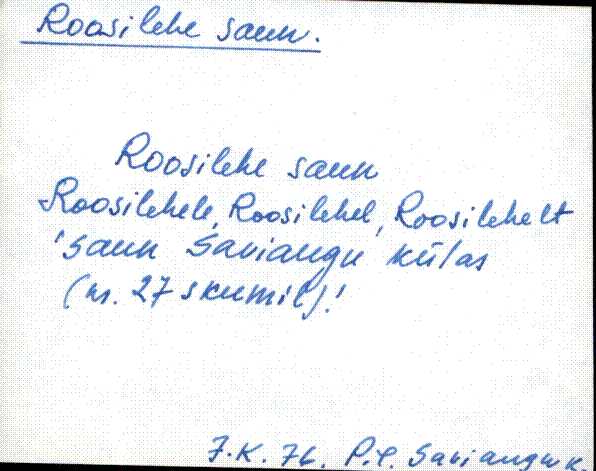 Roosilehe saun.
Roosilehe saun
Roosilehele, Roosilehel, Roosilehelt
'saun Saviangu külas
(nr. 27 skeemil)!
J.K. 76. P.P. Saviangu k.